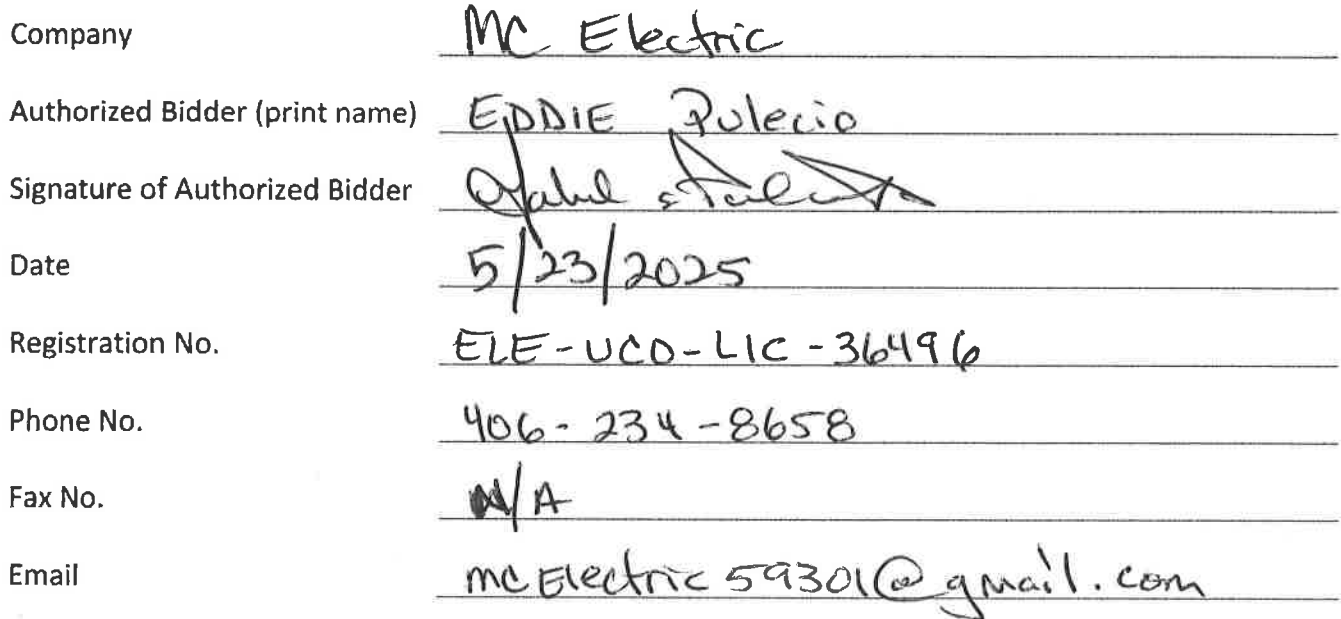 Company MC Electric
Authorized Bidder (print name) EDDIE Pulecio
Signature of Authorized Bidder
Date 5/23/2025
Registration No. ELE-UCO-LIC-36496
Phone No. 406-234-8658
Fax No. N/A
Email mcElectric59301@gmail.com